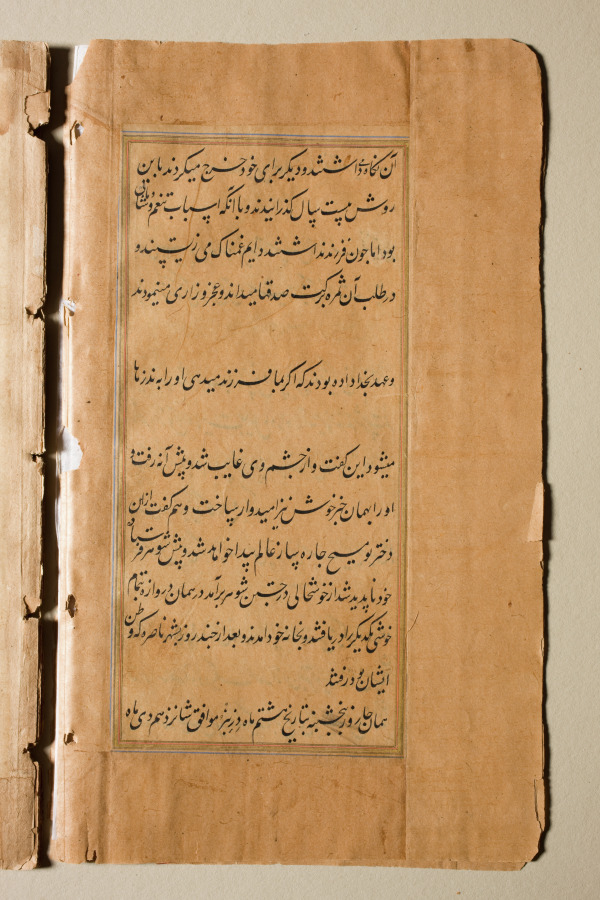 آن نگاه داشتند و دیکر برای خود خرج میکردند باین
روش بیست سال کذرانیدند و با انکه اسباب تنعم و شادمانی
بود اما چون فرزند نداشتند دایم غمناک می زیستند و
در طلب آن ثمره برکت صدقها میدادند و عجز و زاری مینمودند
و عهد بخدا داده بودند که اکر بما فرزند میدهی او را به نذرها
میشود این کفت و از چشم وی غایب شد و پیش آنه رفت و
او را بهمان خبر خوش نیز امیدوار ساخت و هم کفت از این
دختر تو مسیح چاره ساز عالم پیدا خواهد شد و پیش شوهر فرستاده
خود ناپدید شد از خوشحالی در جستن شوهر برآمد در همان دروازه بتمام
خوشی یکدیکر را دریافتند و بخانه خود آمدند و بعد از چند روز بشهر ناصره که وطن
ایشان بود رفتند
همان چار روز پنجشنبه بتاریخ هشتم ماه دزنبر موافق شانزدهم دی ماه